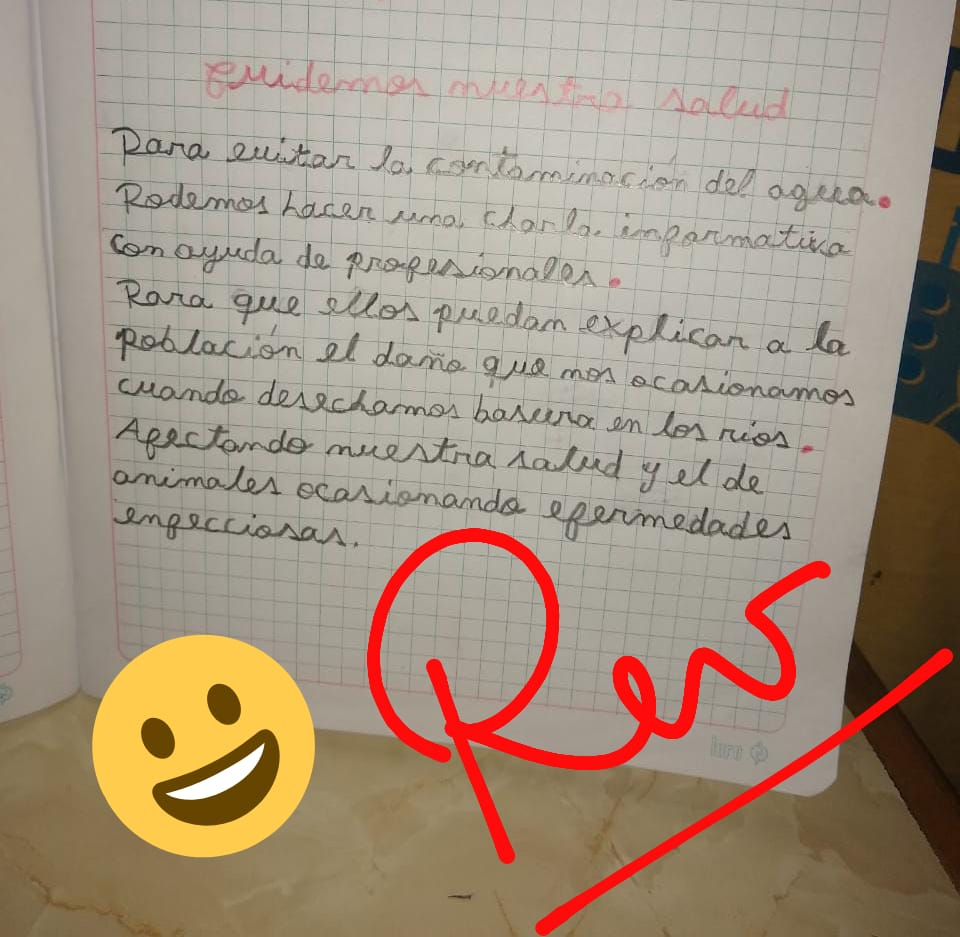 Cuidemos nuestra salud
Para evitar la contaminación del agua.
Podemos hacer una charla informativa
con ayuda de profesionales.
Para que ellos puedan explicar a la
población el daño que nos ocasionamos
cuando desechamos basura en los rios.
Afectando nuestra salud y el de
animales ocasionando efermedades
enfecciosas.
Rev